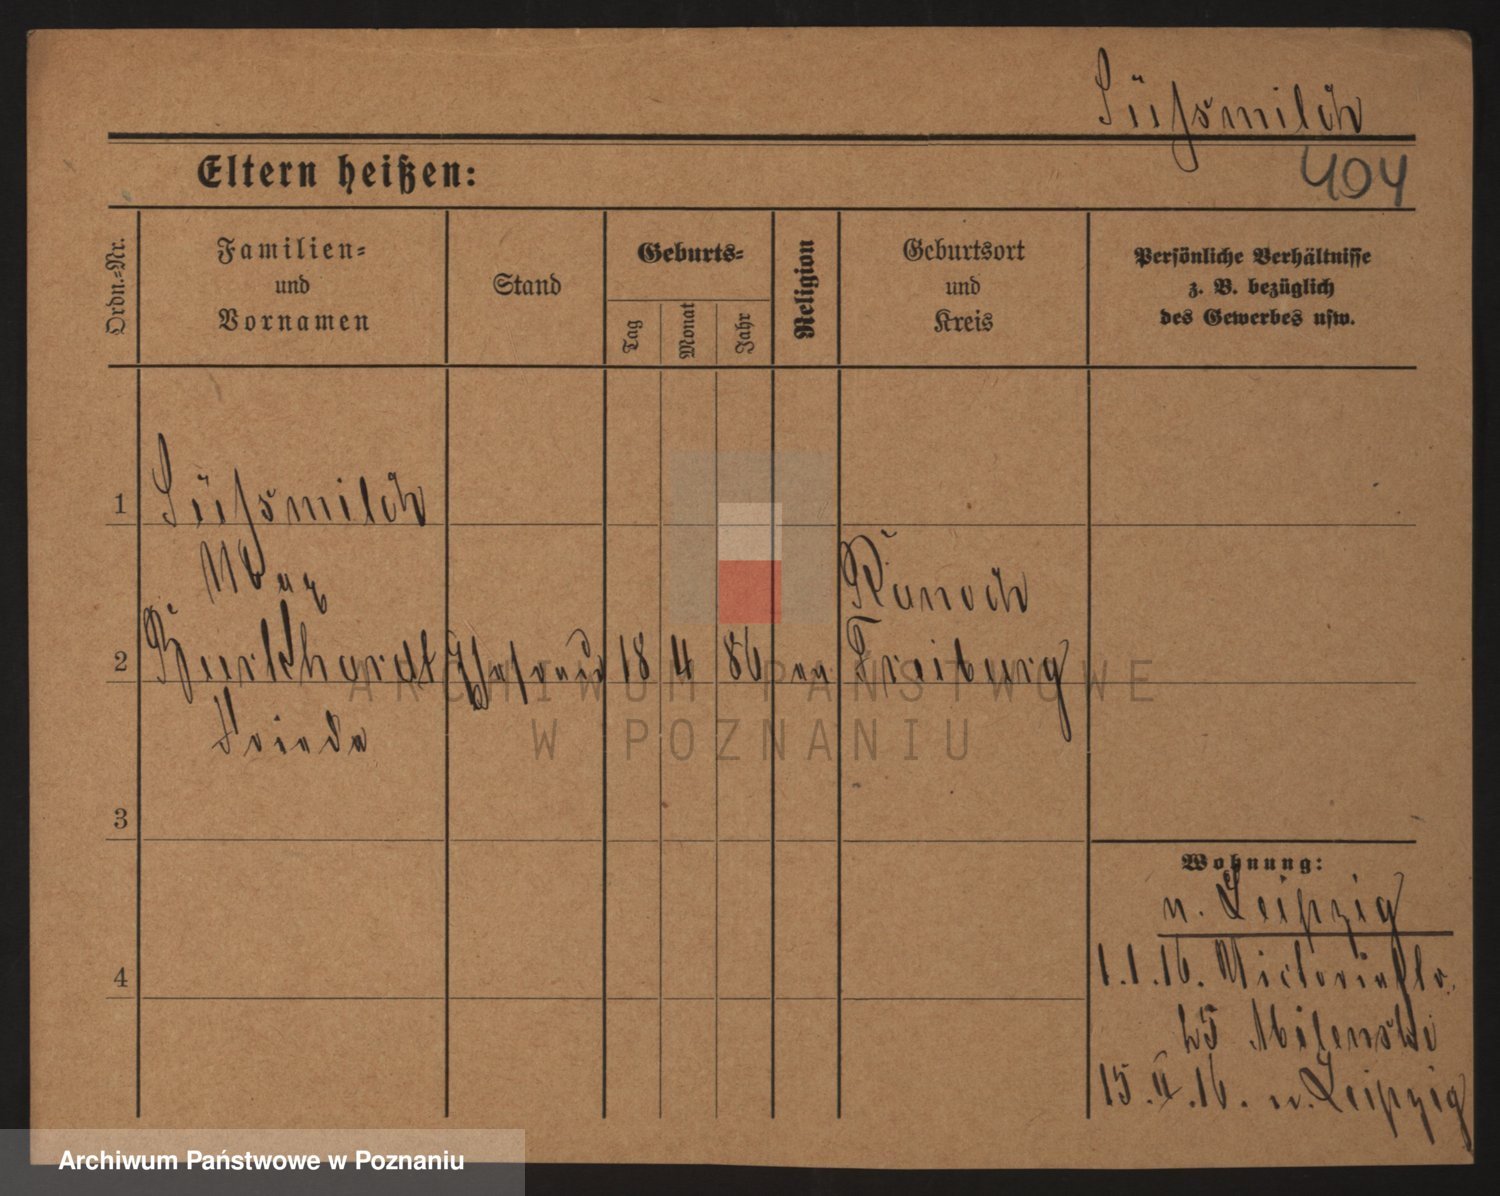 Süßmilch
404
Eltern heißen:
Ordn.-Nr.
Familien-
und
Vornamen
Stand
Geburts-
Tag
Monat
Jahr
Religion
Geburtsort
und
Kreis
Persönliche Verhältnisse
z. B. bezüglich
des Gewerbes usw.
1 Süßmilch
Max
2 Burkhardt Ehefrau 18 4 86 Freiburg
Frieda
3
4
Wohnung:
n. Leipzig
1.1.16. Victoriastr.
25
15.II.16. n. Leipzig
ARCHIWUM PAŃSTWOWE
W POZNANIU
Archiwum Państwowe w Poznaniu